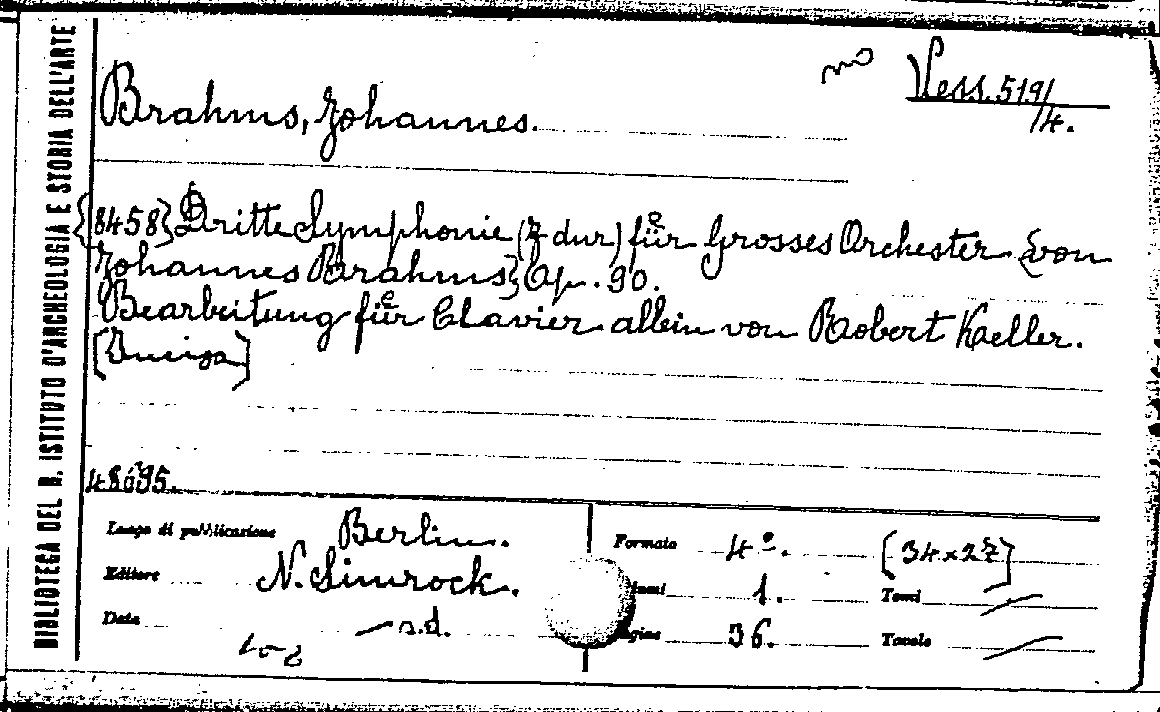 BIBLIOTECA DEL R. ISTITUTO D'ARCHEOLOGIA E STORIA DELL'ARTE
Vess. 519/4.
Brahms, Johannes.
{8458} Dritte Symphonie (F dur) für Grosses Orchester {von
Johannes Brahms} Op. 90.
Bearbeitung für Clavier allein von Robert Keller.
48695.
Luogo di pubblicazione Berlin.
Editore N. Simrock.
Data s.d.
Formato 4º. [34x27]
1. Tomi
36. Tavole